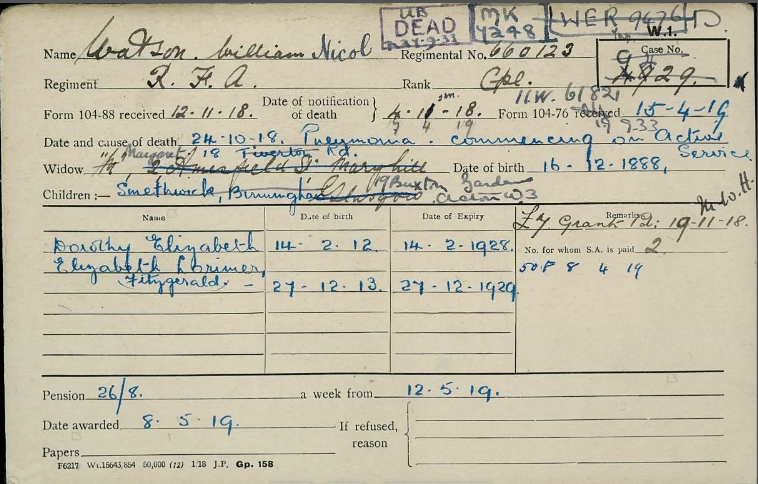 UB DEAD 27.9.33 MK 4298 WER 9476/D
W.1.
Name Watson. William Nicol Regimental No. 660123 Case No.
Regiment R. F. A. Rank Cpl. 4829.
11W. 61821
Form 104-88 received 12-11-18. Date of notification of death } 4-11-18. Form 104-76 received 15-4-19
7 4 19 19 9.33
Date and cause of death 24-10-18. Pneumonia. commencing on Active Service
Margaret 18 Tiverton Rd.
Widow Maryhill Date of birth 16-12-1888,
Children:— Smethwick, Birmingham Glasgow 19 Buxton Gardens Acton W3
M.W.H.
Name Date of birth Date of Expiry Remarks
£7 Grant Pd: 19-11-18.
No. for whom S.A. is paid 2.
Dorothy Elizabeth 14-2-12. 14-2-1928. SOP 8 4 19
Elizabeth Lorimer,
Fitzgerald.- 27-12-13. 27-12-1929
Pension 26/8. a week from 12.5.19.
Date awarded 8.5.19. If refused, reason
Papers
F6217 Wt.15643,854 50,000 (12) 1/18 J.P. Gp. 158